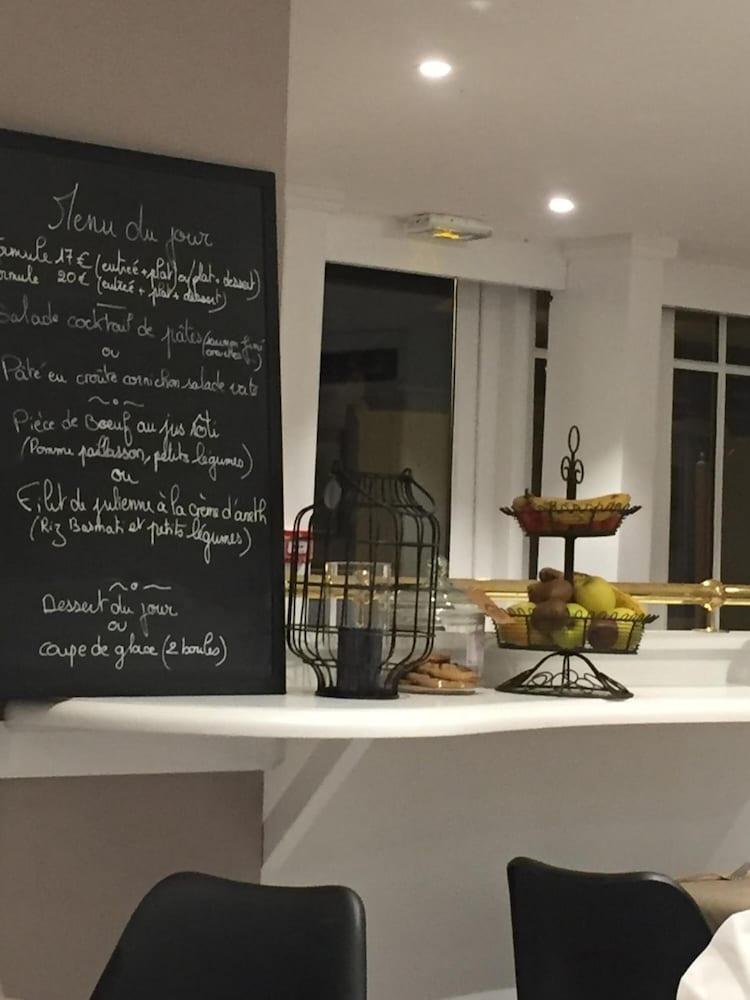 Menu du jour
ormule 17€ (entreé+plat) ou (plat+dessert)
ormule 20€ (entreé + plat + dessert)
Salade cocktail de pâtes (
ou
Pâté en croûte cornichon salade verte
Pièce de Boeuf au jus rôti
(Pomme paillasson, petits légumes)
ou
Filet de julienne à la crème d'aneth
(Riz Basmati et petits légumes)
Dessert du jour
ou
coupe de glace (2 boules)